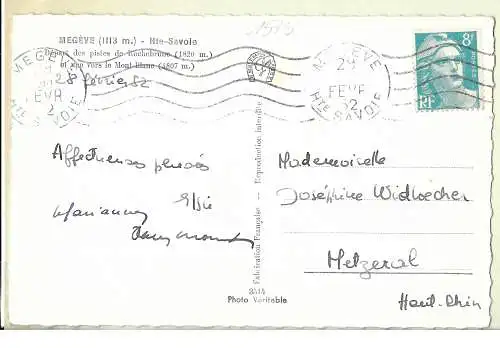 MEGÈVE (1113 m.) - Hte-Savoie
Départ des pistes de Rochebrune (1820 m.)
et vue vers le Mont Blanc (4807 m.)
28 février 52
Affectueuses pensées
Elsie
Marianne
Raymonde
Mademoiselle
Joséphine Widloecher
Metzeral
Haut-Rhin
MEGÈVE
FEVR
52
HTE SAVOIE
MEGÈVE
FEVR
HTE SAVOIE
8F
RF
Fabrication Française - Reproduction Interdite
Photo Véritable